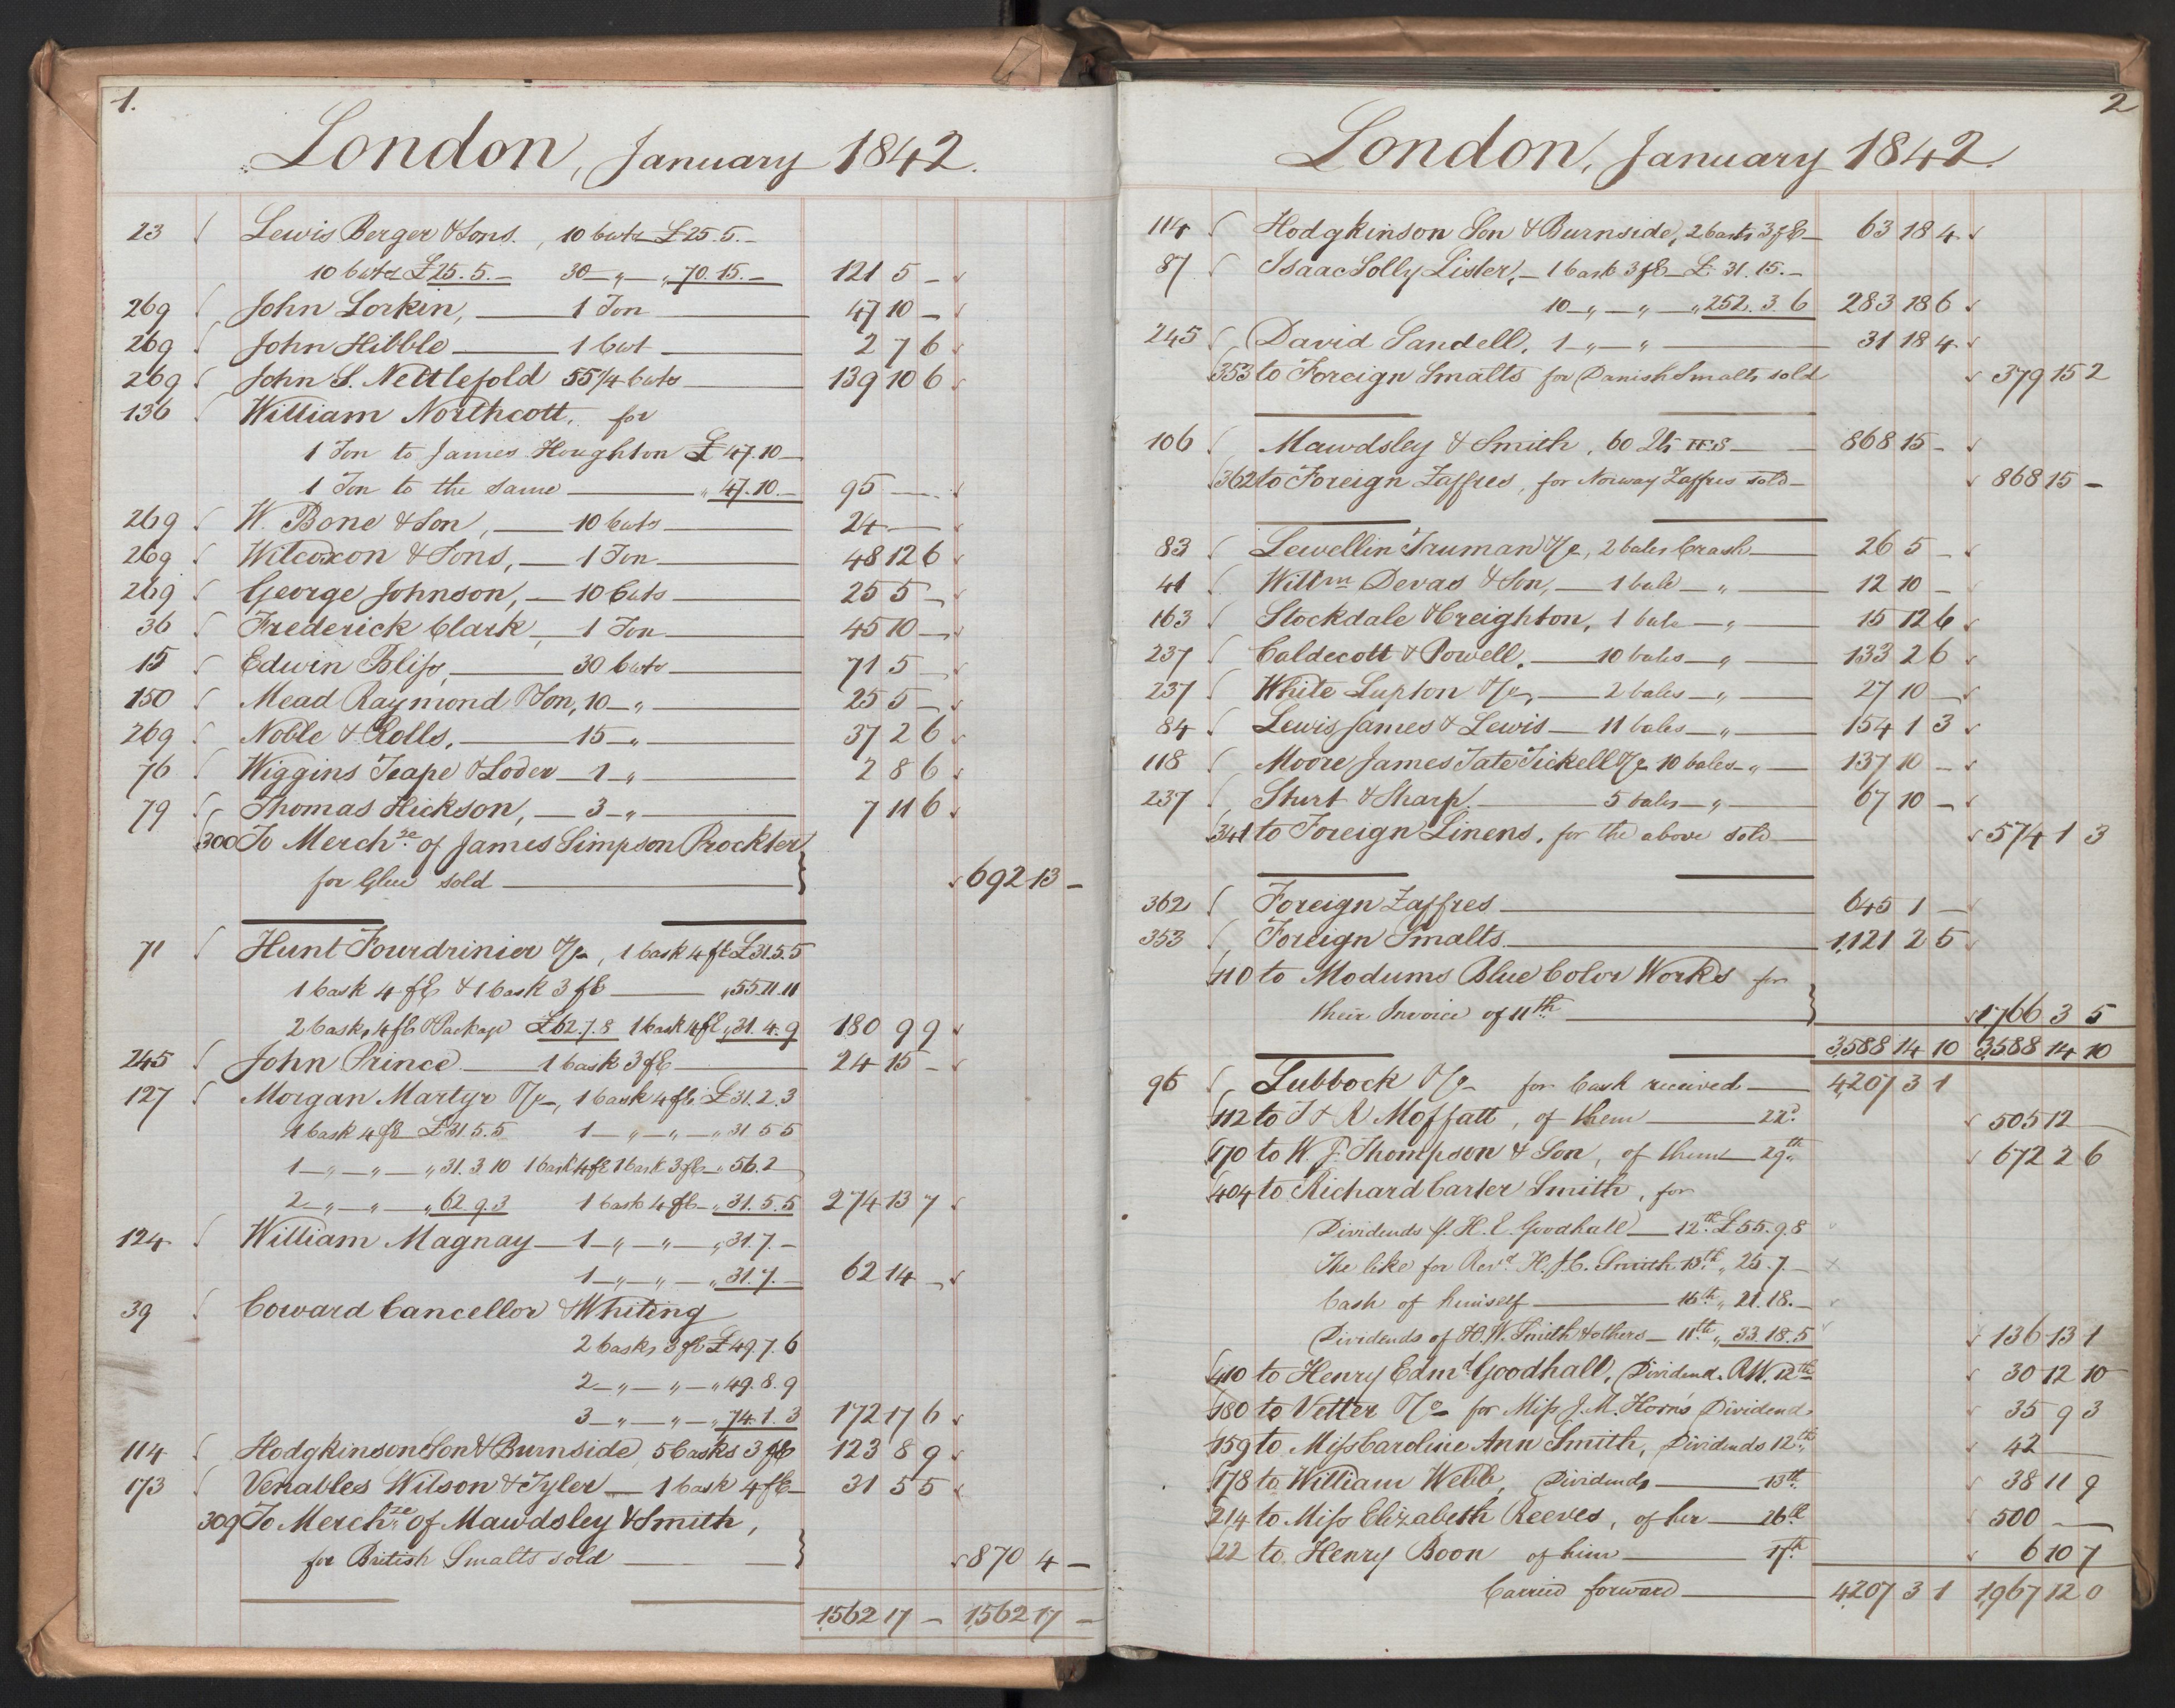 1.
London, January 1842.
23 Lewis Berger & Sons, 10 Cwts £25.5.–
10 Cwts £25.5.– 30 – „ – „ 70.15.– 121 5 –
269 John Lorkin, 1 Ton 47 10 –
269 John Hibble 1 Cwt 2 7 6
269 John S. Nettlefold 55 1/4 Cwts 139 10 6
136 William Northcott, for
1 Ton to James Houghton £47.10 –
1 Ton to the same „ 47.10.– 95 – –
269 W. Bone & Son, 10 Cwts 24 – –
269 Wilcoxon & Sons, 1 Ton 48 12 6
269 George Johnson, 10 Cwts 25 5 –
36 Frederick Clark, 1 Ton 45 10 –
15 Edwin Bliss, 30 Cwts 71 5 –
150 Mead Raymond & Son, 10 – „ 25 5 –
269 Noble & Rolls, 15 – „ 37 2 6
76 Wiggins Teape & Loder – 1 – „ 2 8 6
79 Thomas Hickson, – 3 – „ 7 11 6
300 To Merchze of James Simpson Prockter
for Glue sold 692 13 –
71 Hunt Fourdrinier & Co, 1 Cask 4 fE £31.5.5
1 Cask 4 fE & 1 Cask 3 fE „ 55.11.11
2 Casks 4 fE & Package £62.7.8 1 Cask 4 fE „ 31.4.9 180 9 9
245 John Prince 1 Cask 3 fE 24 15 –
127 Morgan Martyr & Co, 1 Cask 4 fE £31.2.3
1 Cask 4 fE £31.5.5 1 – „ – „ – „ 31 5 5
1 – „ – „ – „ 31.3.10 1 Cask 4 fE 1 Cask 3 fE „ 56.2
2 – „ – „ – „ 62.9.3 1 Cask 4 fE – „ 31.5.5 274 13 7
124 William Magnay – 1 – „ – „ – „ 31.7.–
1 – „ – „ – „ 31.7.– 62 14 –
39 Coward Cancellor & Whiting
2 Casks 3 fE £49.7.6
2 – „ – „ – „ 49.8.9
3 – „ – „ – „ 74.1.3 172 17 6
114 Hodgkinson Son & Burnside, 5 Casks 3 fE 123 8 9
173 Venables Wilson & Tyler – 1 Cask 4 fE – 31 5 5
309 To Merchze of Mawdsley & Smith,
for British Smalts sold 870 4 –
1,562 17 – 1,562 17 –
2
London, January 1842.
114 Hodgkinson Son & Burnside, 2 Casks 3 fE – 63 18 4
87 Isaac Solly Lister, – 1 Cask 3 fE £31.15.–
10 – „ – „ – „ 252.3.6 283 18 6
245 David Sandell, 1 – „ – „ 31 18 4
353 to Foreign Smalts for Danish Smalts sold 379 15 2
106 Mawdsley & Smith, 60 868 15 –
362 to Foreign Zaffres, for Norway Zaffres sold – 868 15 –
83 Lewellin Truman & Co, 2 bales Crash 26 5 –
41 Willm Devas & Son, – 1 bale – „ 12 10 –
163 Stockdale & Creighton, 1 bale – „ 15 12 6
237 Caldecott & Powell, 10 bales – „ 133 2 6
237 White Lupton & Co, 2 bales – „ 27 10 –
84 Lewis James & Lewis – 11 bales – „ 154 1 3
118 Moore James Tate Tickell & Co 10 bales – „ 137 10 –
237 Sturt & Sharp 5 bales – „ 67 10 –
341 to Foreign Linens, for the above sold 574 1 3
362 Foreign Zaffres 645 1 –
353 Foreign Smalts 1,121 2 5
110 to Modums Blue Color Works for
their Invoice of 11th 1,766 3 5
3,588 14 10 3,588 14 10
95 Lubbock & Co for Cash received 4,207 3 1
112 to T & R Moffatt, of them 22d 505 12 –
170 to W. J. Thompson & Son, of them 29th 672 2 6
404 to Richard Carter Smith, for
Dividends of H. E. Goodhall – 12th £55.9.8
The like for Revd H. J. C. Smith 13th „ 25.7.–
Cash of himself 15th „ 21.18.–
Dividends of H. W. Smith & others – 11th „ 33.18.5 136 13 1
410 to Henry Edmd Goodhall, Dividend. RW. 12th 30 12 10
180 to Vetter & Co for Miss J. M. Horn's Dividend 35 9 3
159 to Miss Caroline Ann Smith, Dividends 12th 42 –
178 to William Webb, Dividends 13th 38 11 9
214 to Miss Elizabeth Reeves, of her 26th 500 –
22 to Henry Boon of him 17th 6 10 7
Carried forward 4207 3 1 1,967 12 0